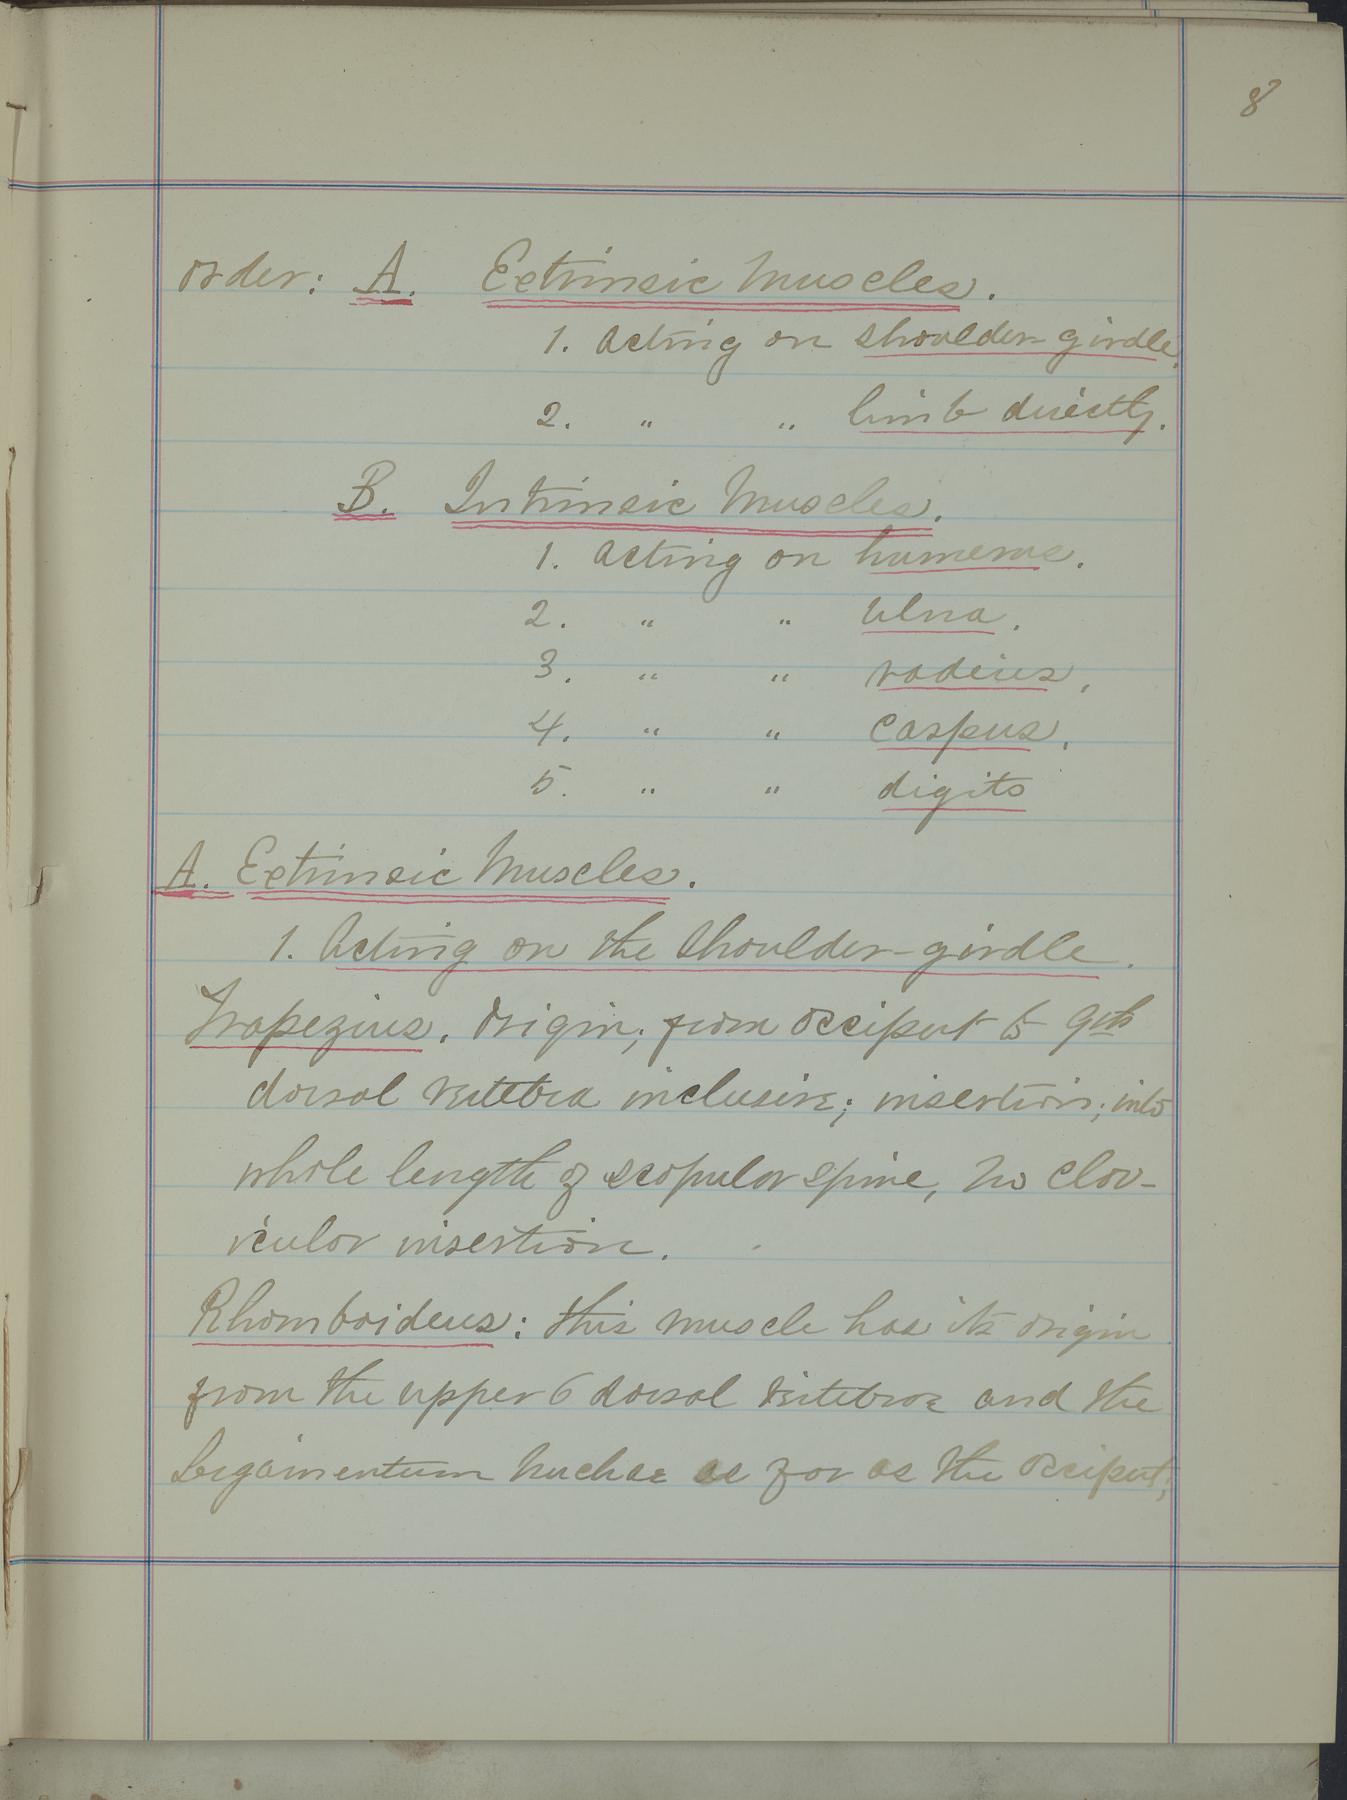 8
order: A. Extrinsic Muscles.
1. Acting on shoulder-girdle.
2. " " limb directly.
B. Intrinsic Muscles.
1. Acting on humerus.
2. " " ulna.
3. " " radius.
4. " " carpus.
5. " " digits
A. Extrinsic Muscles.
1. Acting on the shoulder-girdle.
Trapezius. Origin; from occiput to 9th
dorsal vertebra inclusive; insertion; into
whole length of scapular spine, no clav-
icular insertion.
Rhomboideus: this muscle has its origin
from the upper 6 dorsal vertebrae and the
Ligamentum nuchae as far as the occiput;